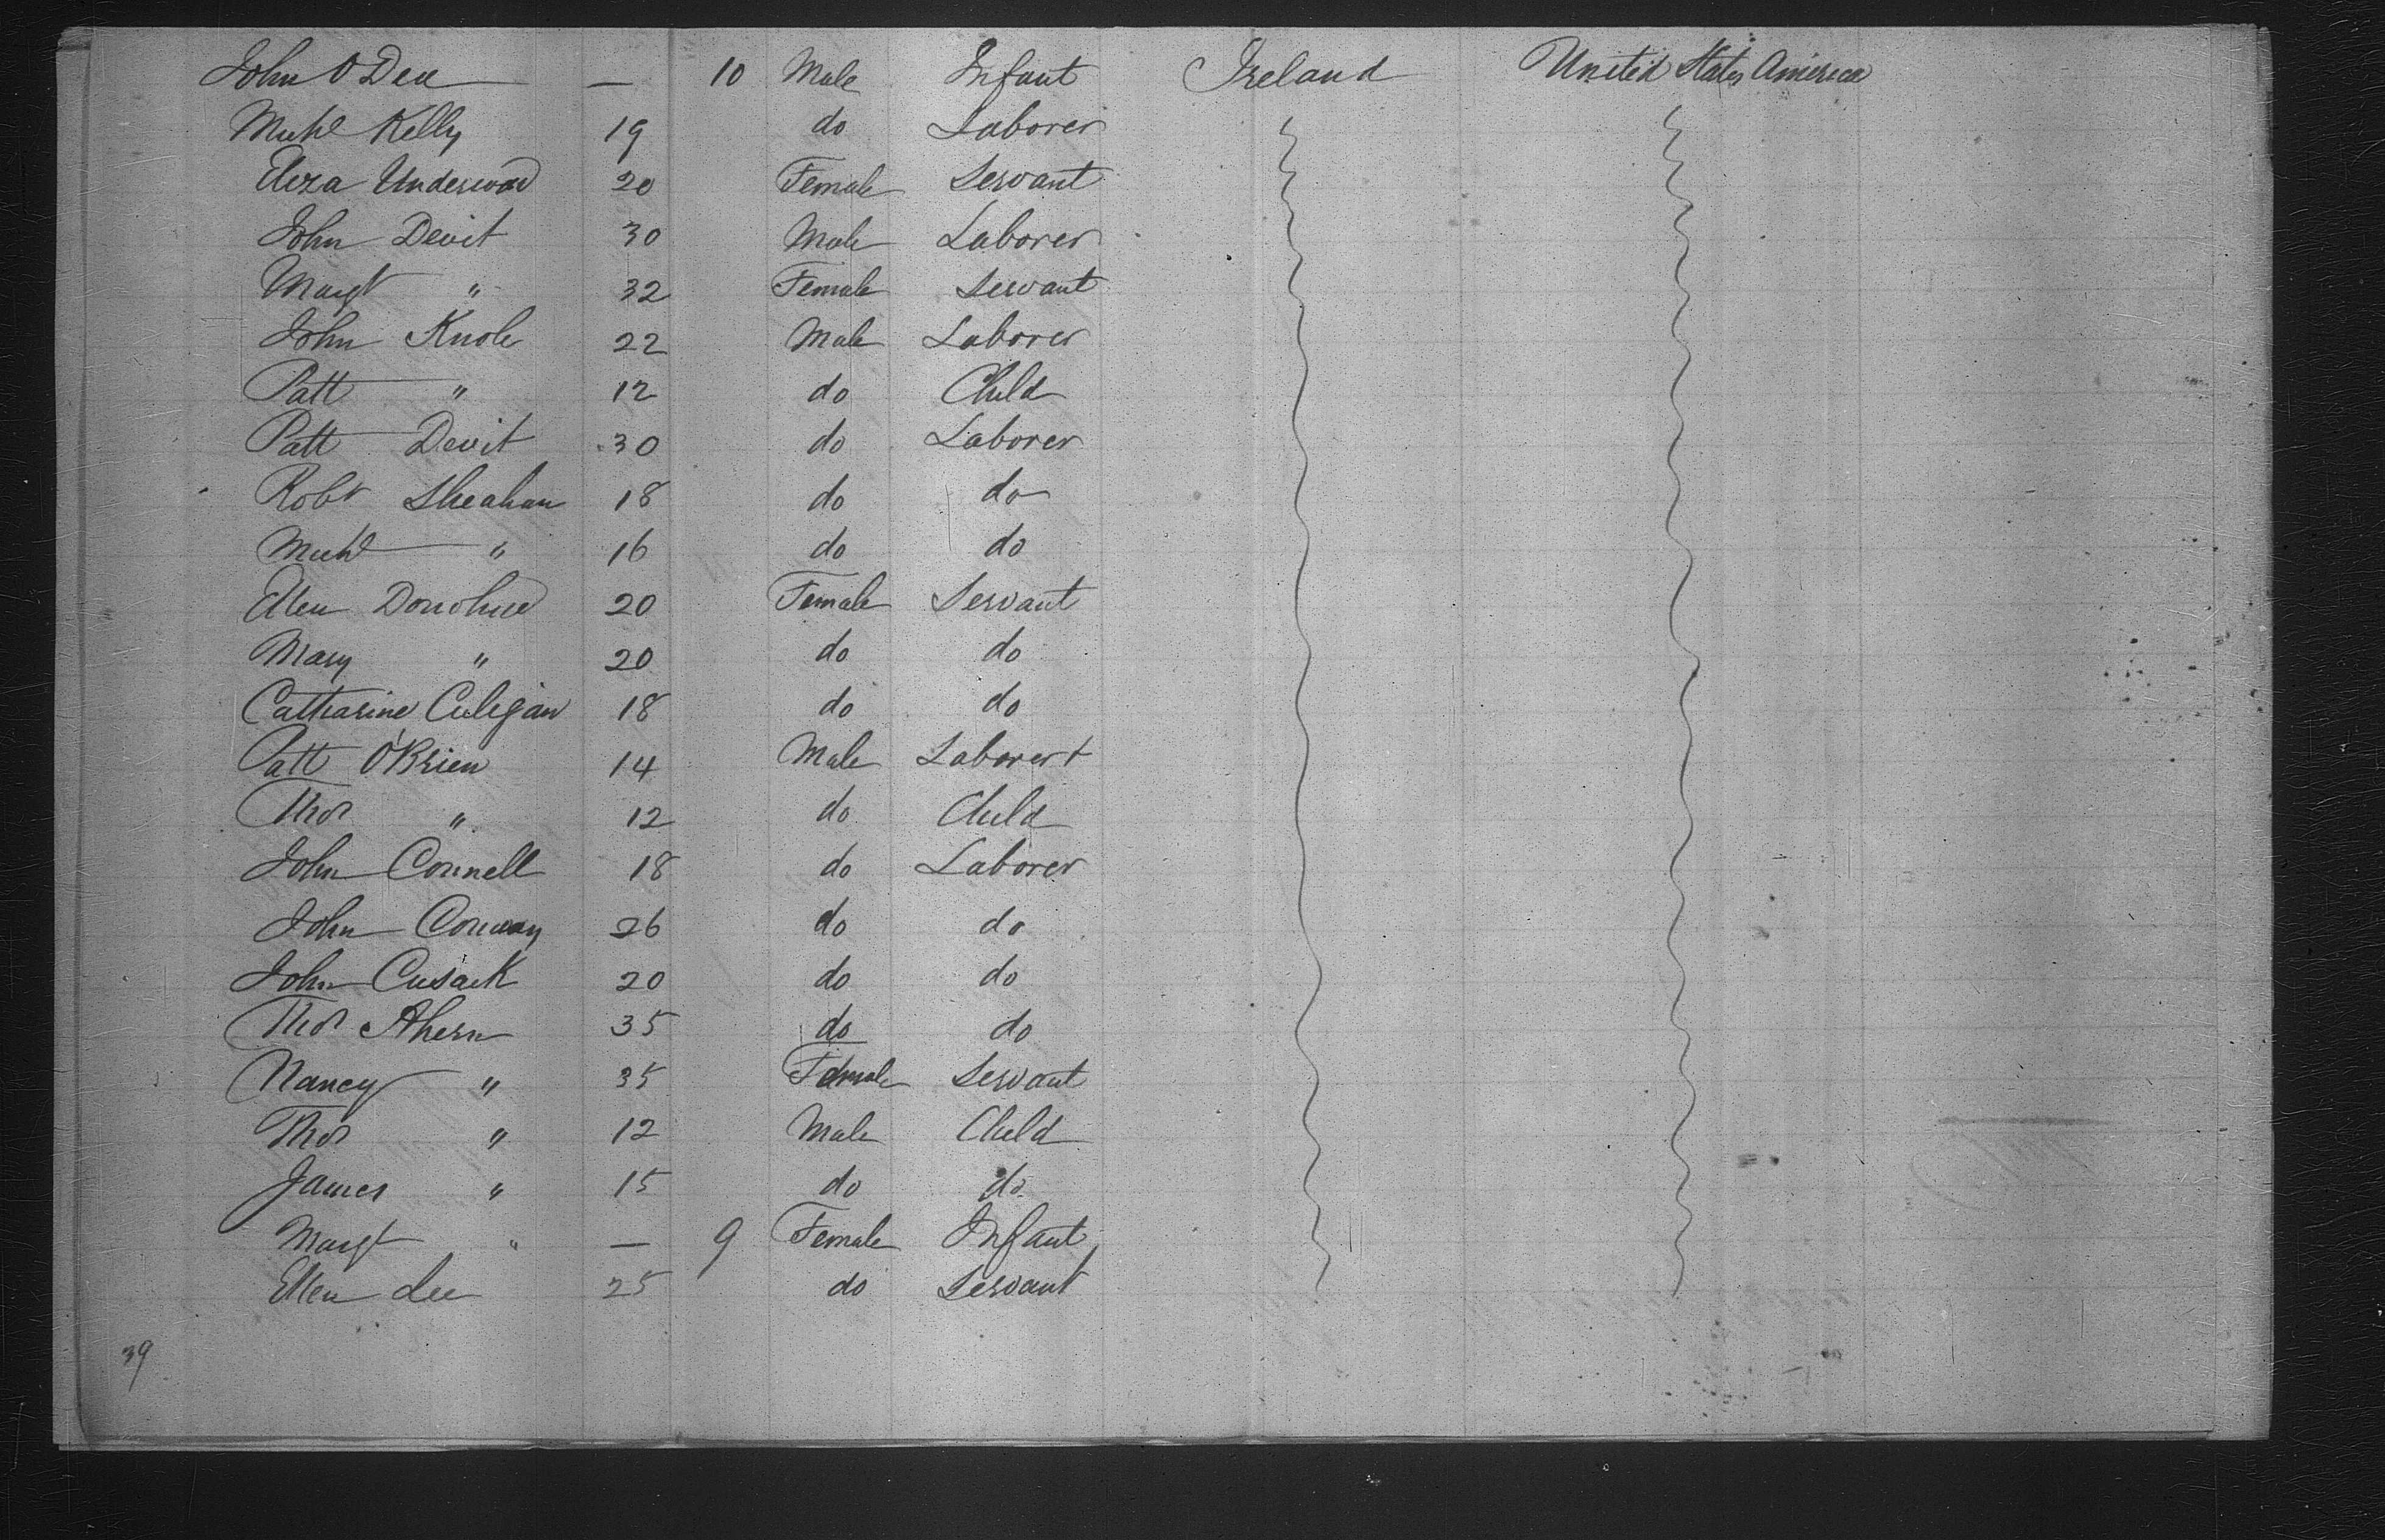 John O Dea — 10 Male Infant Ireland United States America
Michl Kelly 19 do Laborer
Eliza Underwood 20 Female Servant
John Devit 30 Male Laborer
Margt " 32 Female Servant
John Knole 22 Male Laborer
Patt " 12 do Child
Patt Devit 30 do Laborer
Robt Sheahan 18 do do
Michl " 16 do do
Ellen Donohue 20 Female Servant
Mary " 20 do do
Catharine Culigan 18 do do
Patt O'Brien 14 Male Laborer +
Thos " 12 do Child
John Connell 18 do Laborer
John Conway 26 do do
John Cusack 20 do do
Thos Ahern 35 do do
Nancy " 35 Female Servant
Thos " 12 Male Child
James " 15 do do
Margt " — 9 Female Infant
Ellen Lee 25 do Servant
39